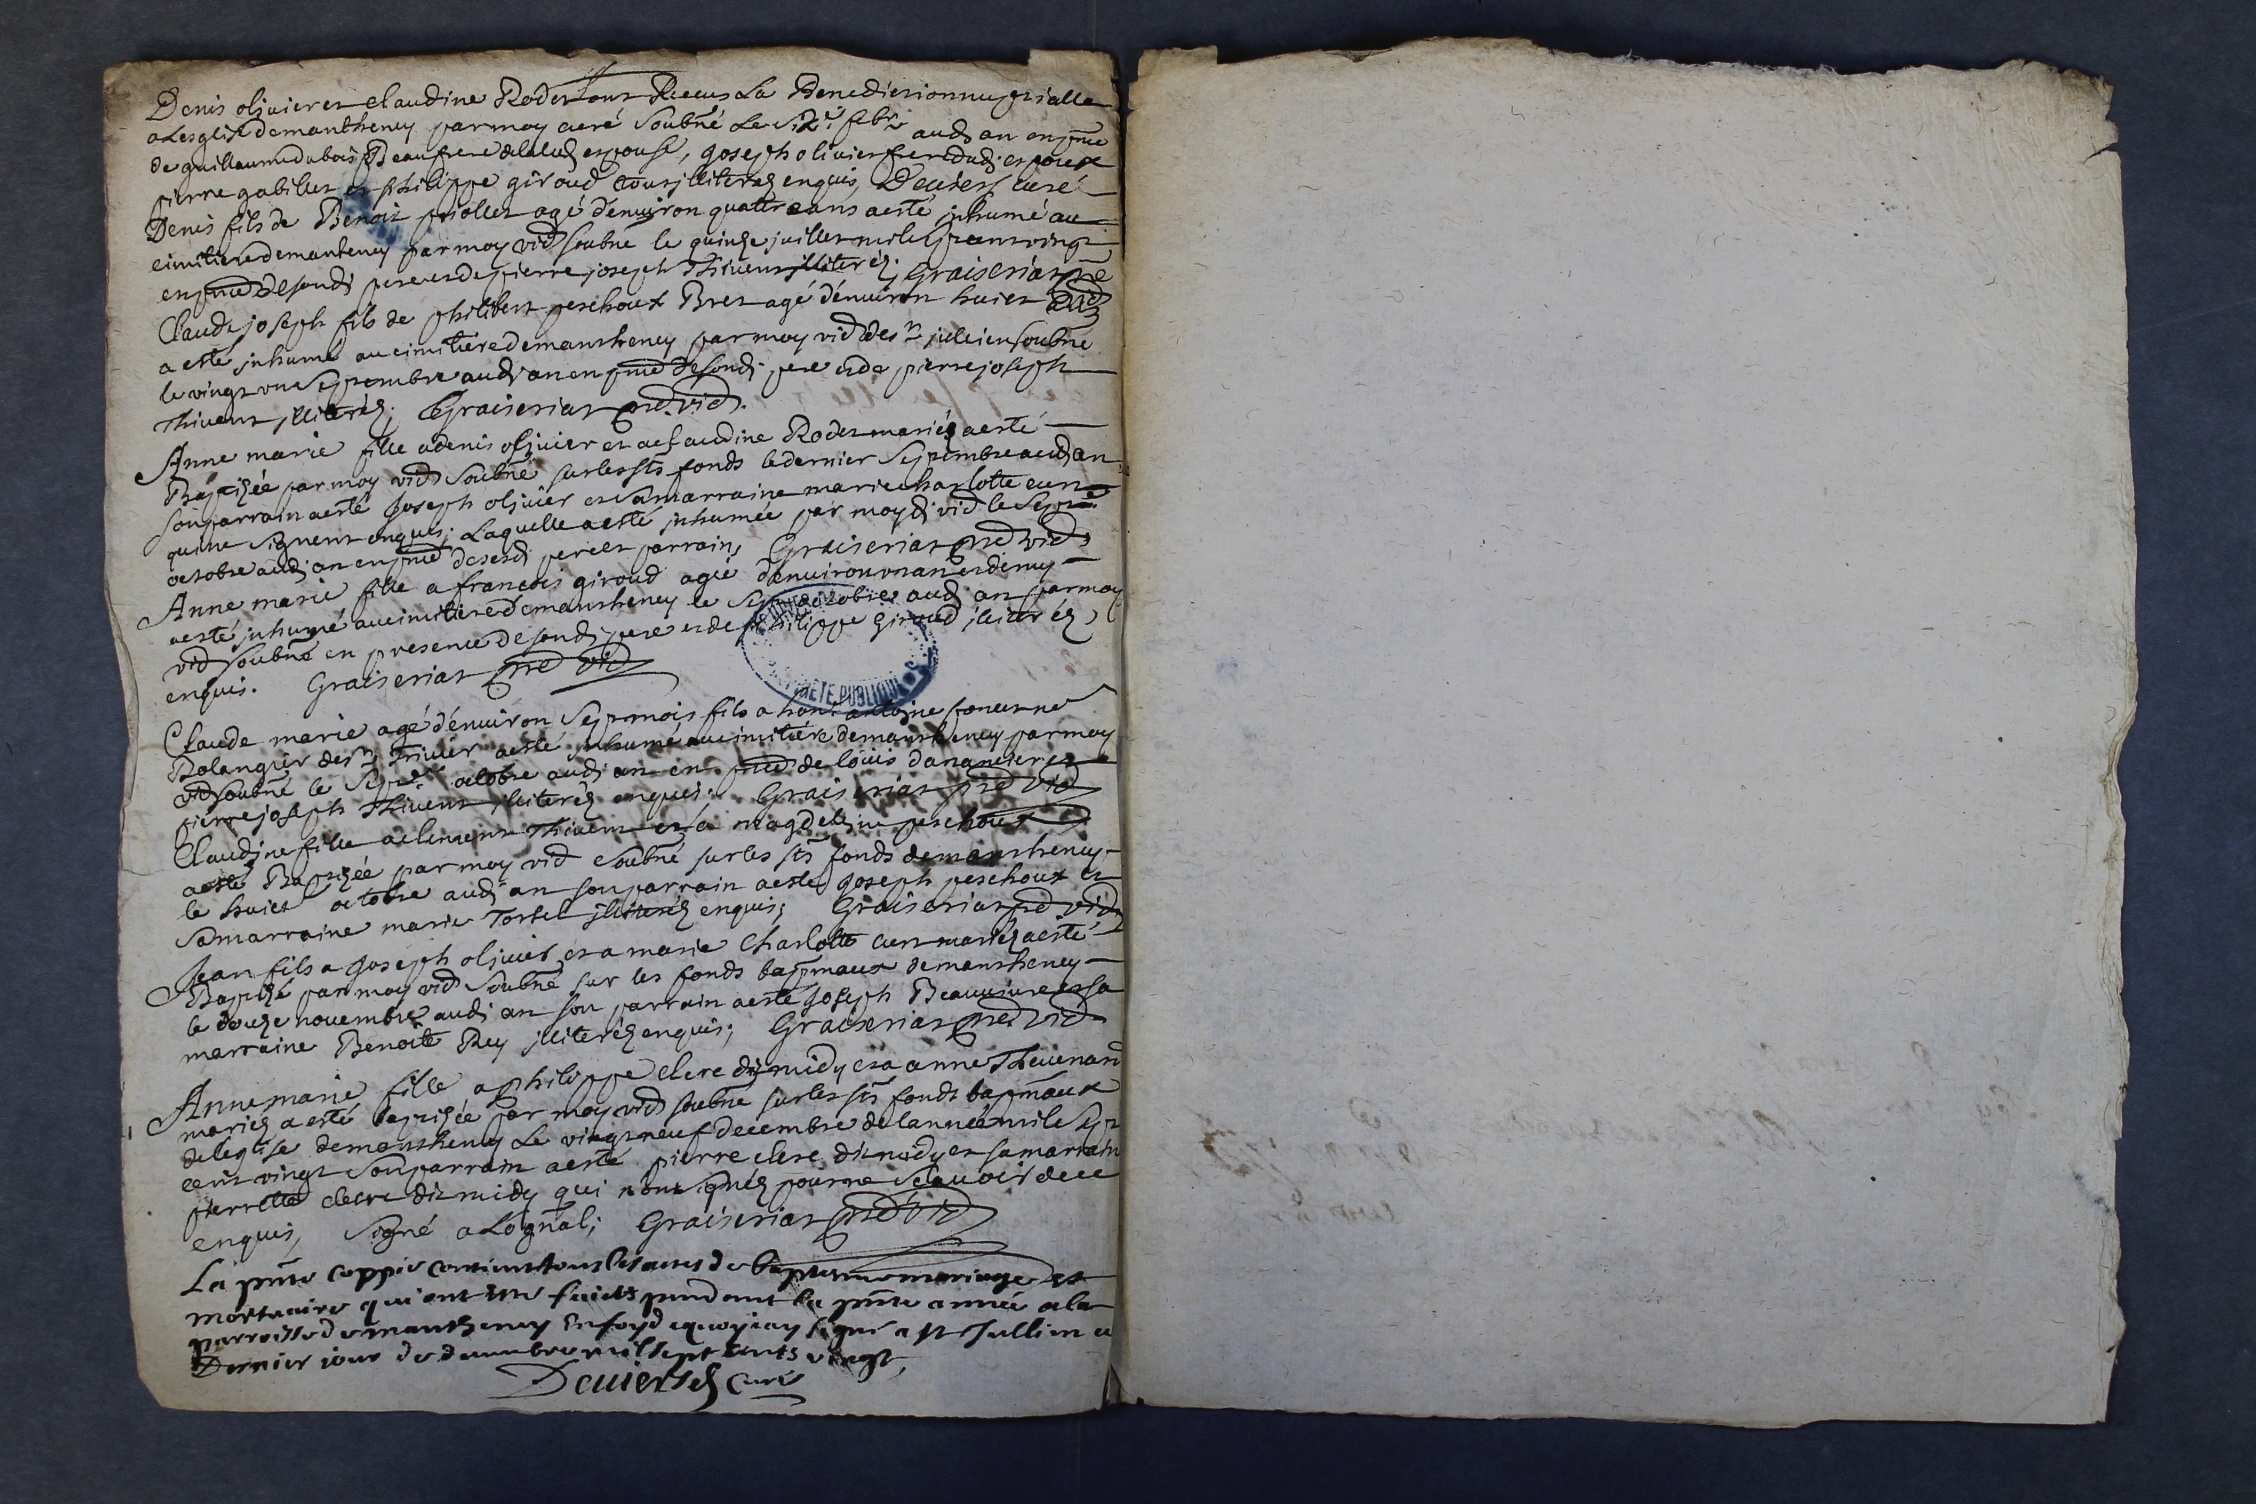 Denis oliuier et claudine Rodet ont Receus La Benediction nuptialle
a Lesglise demantheney par moy curé Soubné Le Six.e febr. audi an en pnce
de guillaume dubois Beaufrere de lad. espouse, Joseph oliuier frere dudi. espoux
pierre gabillet et philippe giroud tous illiterez enquis, Deuiers curé
Denis fils de Benoit piollet agé d'enuiron quattre ans a esté inhumé au
cimitiere demanteney par moy vic soubné le quinze juillet mile sept cent vingt
en pnce de sondi pere et de pierre joseph Thiuent illiterez; Graiseriat pre vic
Claude joseph fils de philibert peschoux Bret agé d'enuiron huict
a esté inhumé au cimitiere demantheney par moy vic de st jullien soubné
le vingt vn Septembre audi an en pnce de sondi pere et de pierre joseph
Thiuent illiterez; Graiseriat pre. vic.
Anne marie fille a denis oliuier et a claudine Rodet mariez a esté
Baptizée par moy vic Soubné sur les sts fonds le dernier Septembre audi an
son parrain a esté Joseph oliuier et sa marraine marie charlotte cure
qui ne signent enquis; Laquelle a esté inhumée par moydi vic le Sept.e
octobre audi an en pnce de sesdi pere et parrain, Graiseriat pre vic
Anne marie fille a francois giroud agée d'enuiron vn an et demy
a esté inhumé au cimitiere demantheney le Sept octobre audi an par moy
vic Soubné en presence de sondi pere et de philippe Giroud illiterez
enquis. Graiseriat pre vic
Claude marie agé d'enuiron Sept mois fils a hon: antoine
Bolangier de st Triuier a esté inhumé au cimitiere demantheney par moy
vic soubné le Sept.e octobre audi an en pnce de loüis danancier et
pierre joseph Thiuent illiterez enquis. Graiseriat pre vic
Claudine fille a clement Thiuent et a magdelaine peschoux
a esté Baptizée par moy vic Soubné sur les sts fonds demantheney
le huict octobre audi an son parrain a esté Joseph peschoux et
sa marraine marie Tortel illiterez enquis; Graiseriat pre vic
Jean fils a Joseph oliuier et a marie Charlotte cure mariez a esté
Baptizé par moy vic Soubné sur les fonds baptmaux demantheney
le douze nouembre audi an son parrain a esté Joseph Beauuiure et sa
marraine Benoite Rey illiterez enquis; Graiseriat pre. vic
Anne marie fille a philippe clerc dit midy et a anne Theuenard
mariez a esté baptizée par moy vic soubné sur les sts fonds baptmaux
de leglise demantheney Le vingt neuf decembre de lannée mile Sept
cent vingt Son parrain a esté pierre clerc dit midy et sa marrain
pierrette clerc dit midy qui n'ont signéz pour ne Scauoir de ce
enquis, Signé a Lorignal; Graiseriat pre vic
La pnte coppie contient tous les actes de baptesme mariage et
mortuaire qui ont esté faicts pendant la pnte année a la
parroisse de mantheney En foy de quoy iay signé a st Jullien ce
Dernier iour de decembre mil sept cents vingt,
Deuiers curé